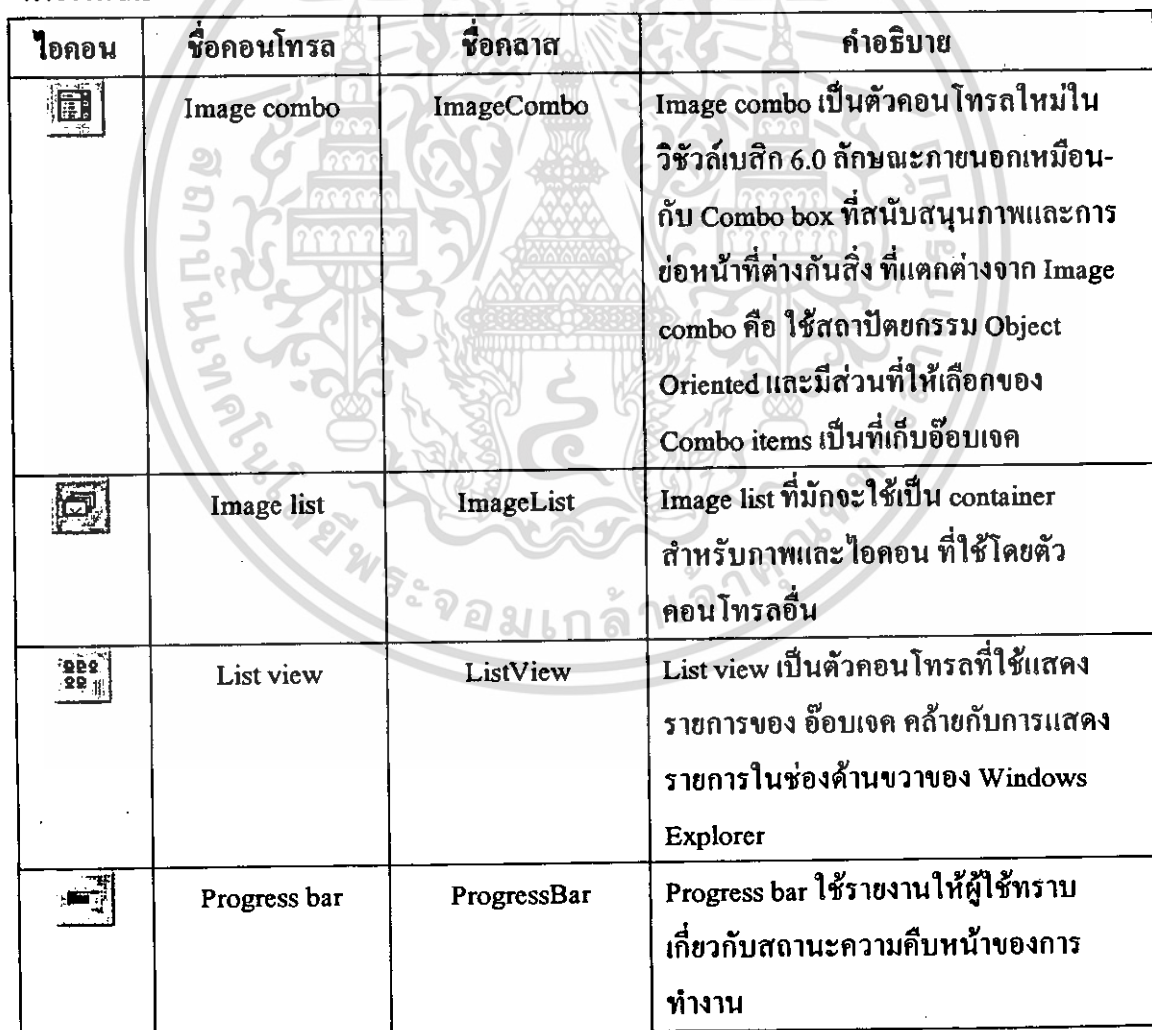 ไอคอน ชื่อคอนโทรล ชื่อคลาส คำอธิบาย
Image combo ImageCombo Image combo เป็นตัวคอนโทรลใหม่ใน
วิชัวล์เบสิก 6.0 ลักษณะภายนอกเหมือน-
กับ Combo box ที่สนับสนุนภาพและการ
ย่อหน้าที่ต่างกันสิ่ง ที่แตกต่างจาก Image
combo คือ ใช้สถาปัตยกรรม Object
Oriented และมีส่วนที่ให้เลือกของ
Combo items เป็นที่เก็บอ๊อบเจค
Image list ImageList Image list ที่มักจะใช้เป็น container
สำหรับภาพและไอคอน ที่ใช้โดยตัว
คอนโทรลอื่น
List view ListView List view เป็นตัวคอนโทรลที่ใช้แสดง
รายการของ อ๊อบเจค คล้ายกับการแสดง
รายการในช่องด้านขวาของ Windows
Explorer
Progress bar ProgressBar Progress bar ใช้รายงานให้ผู้ใช้ทราบ
เกี่ยวกับสถานะความคืบหน้าของการ
ทำงาน